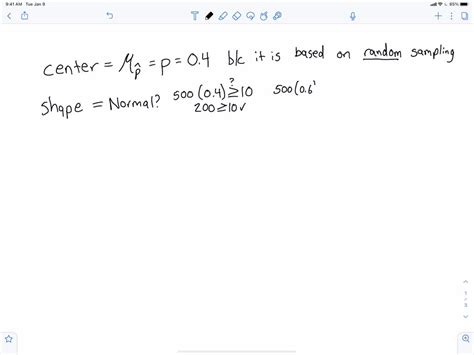 9:41 AM Tue Jan 9
85%
center = μp̂ = p = 0.4 b/c it is based on random sampling
shape = Normal? 500(0.4) ≥? 10 500(0.6
200 ≥ 10 ✓
1
3